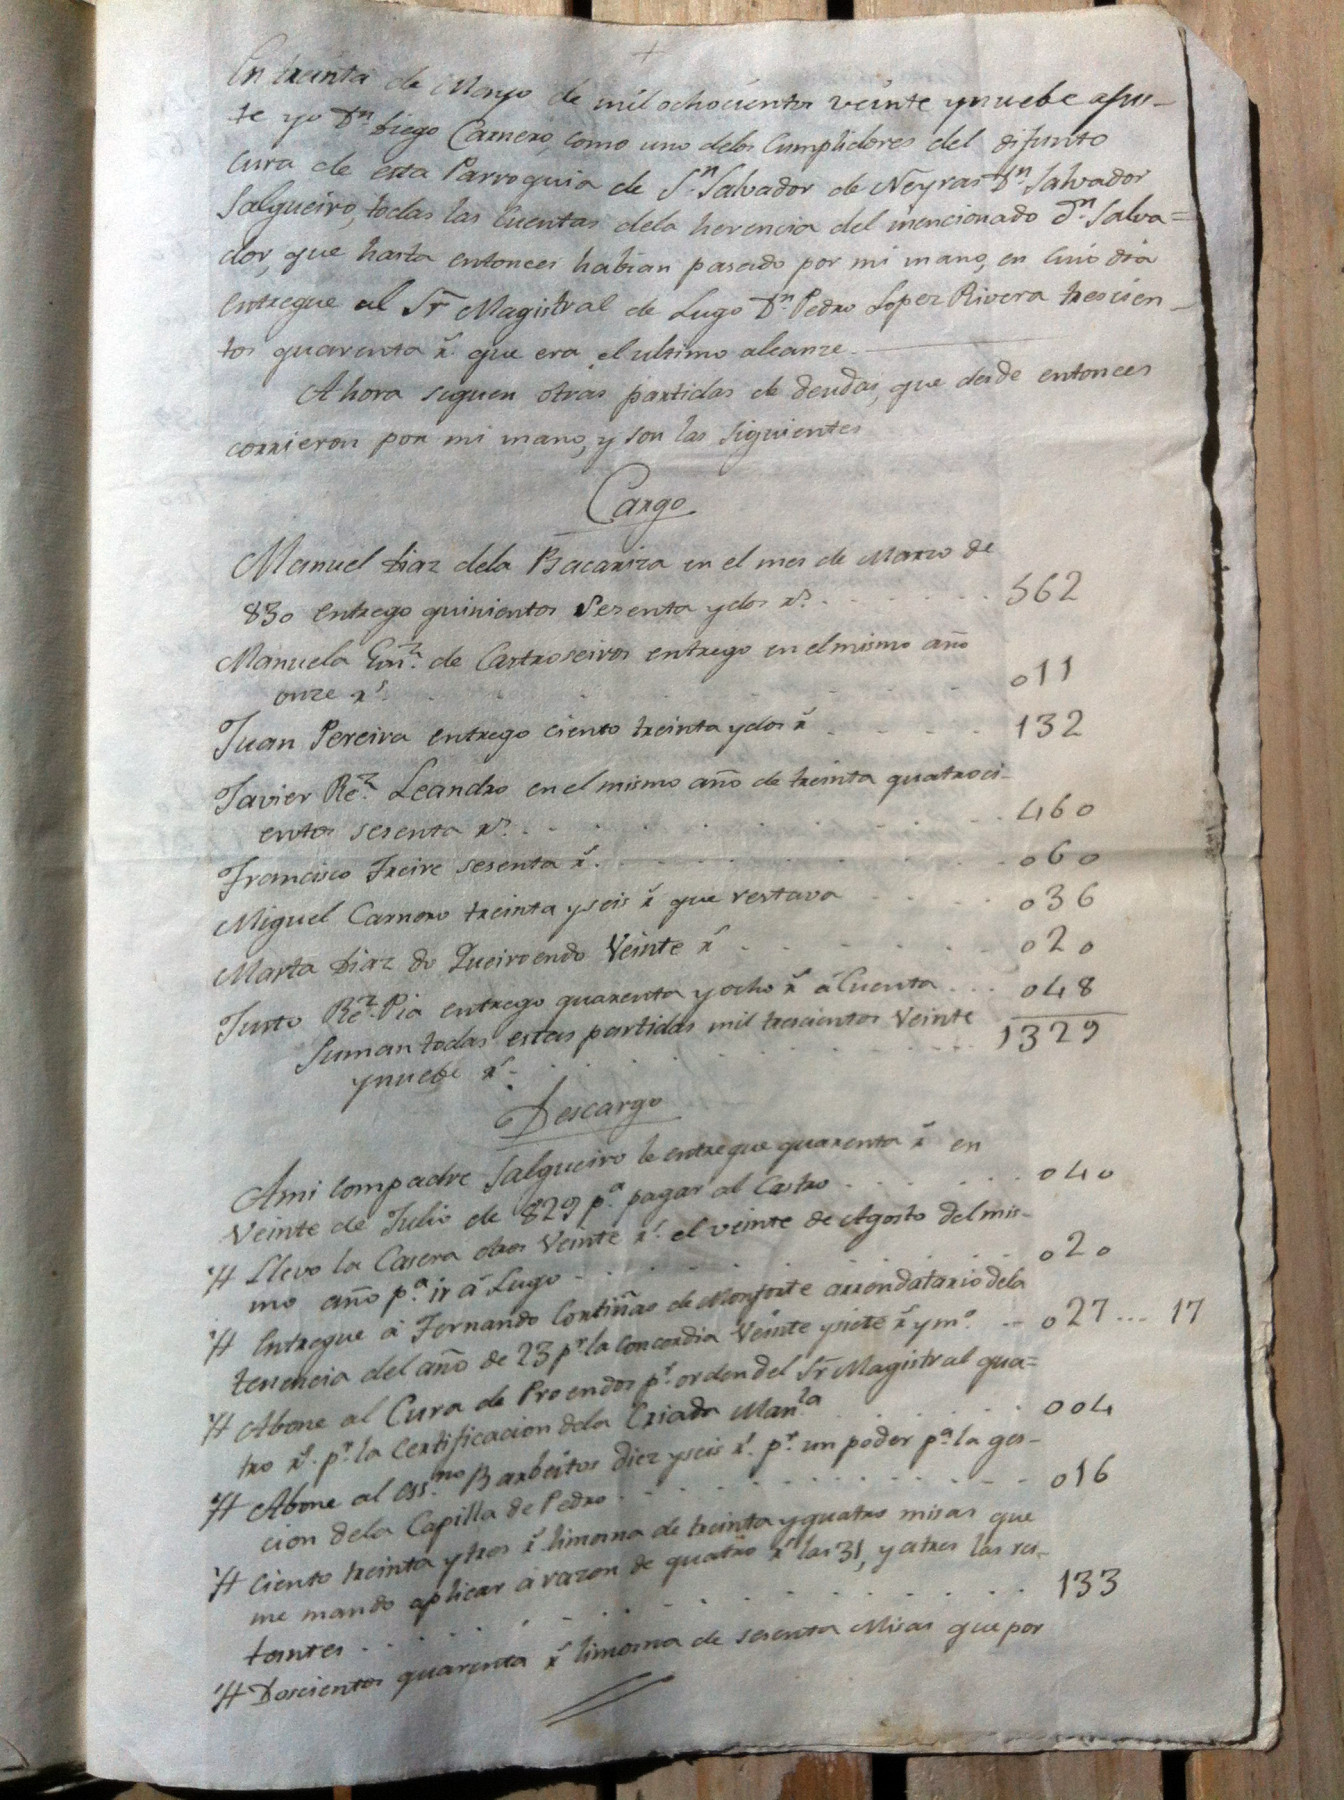 +
En treinta de Mayo de mil ochocientos veinte y nuebe ajus-
te yo Dn. Diego Carnero, como uno delos Cumplidores del difunto
Cura de esta Parroquia de Sn. Salvador de Neyras Dn. Salvador
Salgueiro, todas las Cuentas dela herencia del mencionado Dn. Salva=
dor, que hasta entonces habian pasado por mi mano, en cuio dia
entregue al Sr. Magistral de Lugo Dn. Pedro Lopez Rivera trescien-
tos quarenta rs. que era el ultimo alcanze.
Ahora siguen otras partidas de deudas, que desde entonces
corrieron por mi mano, y son las siguientes
Cargo
Manuel Diaz dela Bacariza en el mes de Marzo de
830 entrego quinientos sesenta y dos rs. 562
Manuela de Castroseiros entrego en el mismo año
onze rs. 011
Juan Pereira entrego ciento treinta y dos rs 132
Javier Rez. Leandro en el mismo año de treinta quatroci-
entos sesenta rs. 460
Francisco Freire sesenta rs. 060
Miguel Carnero treinta y seis rs que restava 036
Marta Diaz do Queiroendo Veinte rs 020
Justo Rez. Pia entrego quarenta y ocho rs á Cuenta 048
Suman todas estas partidas mil trescientos Veinte 1329
y nuebe rs.
Descargo
A mi compadre Salgueiro le entregue quarenta rs en
Veinte de Julio de 829 pa. pagar al Castro 040
Llevo la Casera otros Veinte rs. el veinte de Agosto del mis-
mo año pa. ir á Lugo 020
Entregue á Fernando Cortiñas de Monforte arrendatario dela
tenencia del año de 23 pr. la Concordia Veinte y siete rs y mo. 027 ... 17
Abone al Cura de Proendos pr. orden del Sr. Magistral qua=
tro rs. pr. la Certificacion dela Criada Manla. 004
Abone al Essno. Barbeitos diez y seis rs. pr. un poder pa. la ges-
cion dela Capilla de Pedro 016
Ciento treinta y tres rs limosna de treinta y quatro misas que
me mando aplicar á razon de quatro rs las 31, y atres las res-
tantes 133
Doscientos quarenta rs limosna de sesenta Misas que por